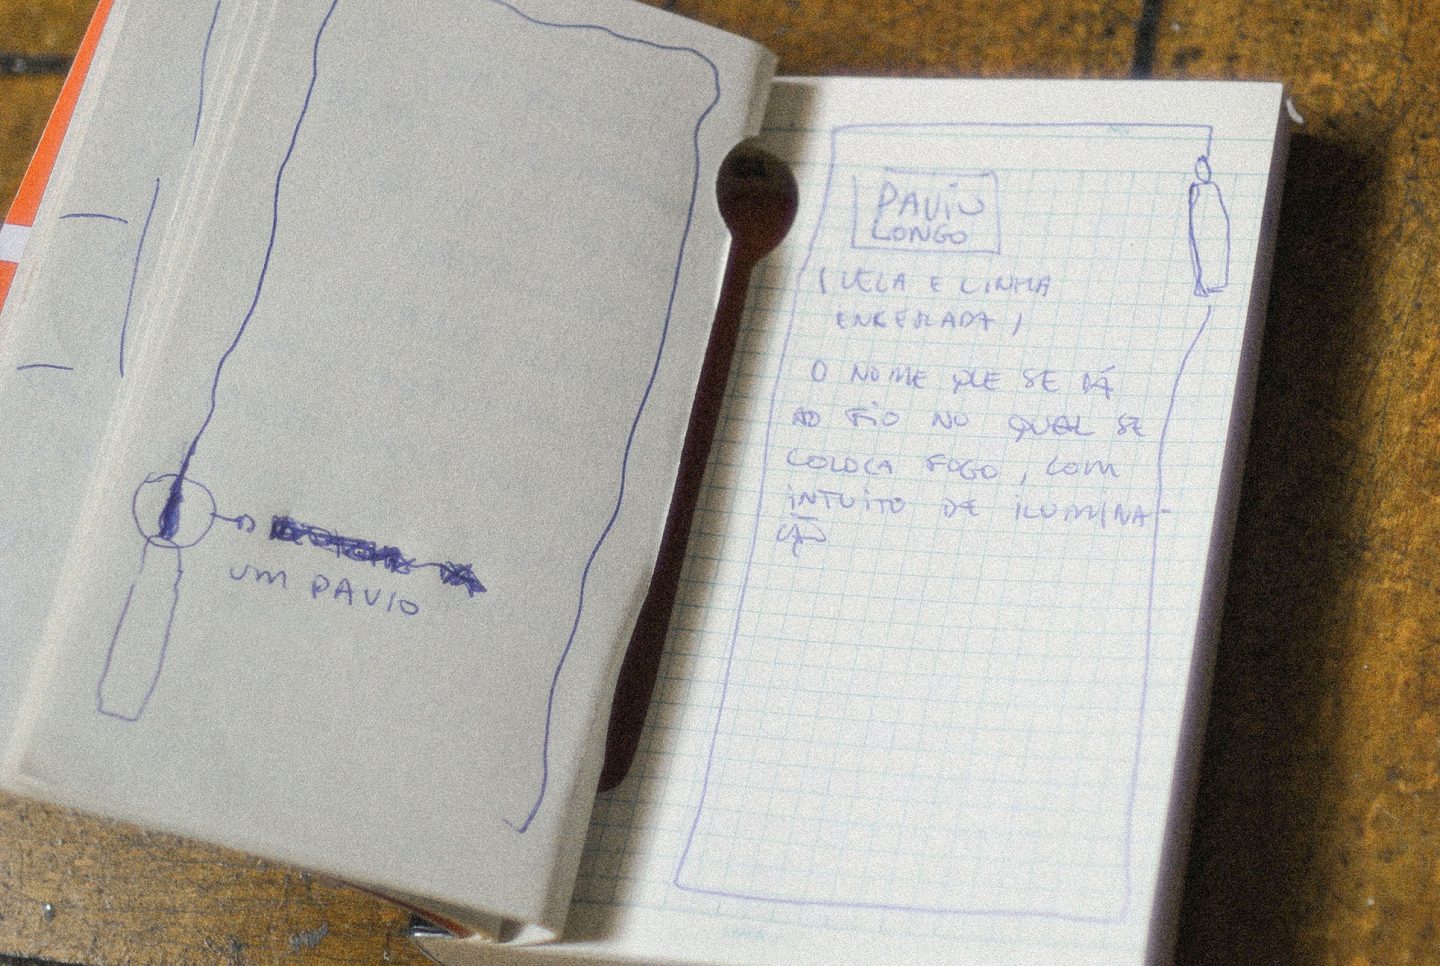 UM PAVIO
PAVIO
LONGO
(VELA E LINHA
ENCERADA)
O NOME QUE SE DÁ
AO FIO NO QUAL SE
COLOCA FOGO, COM
INTUITO DE ILUMINA-
ÇÃO